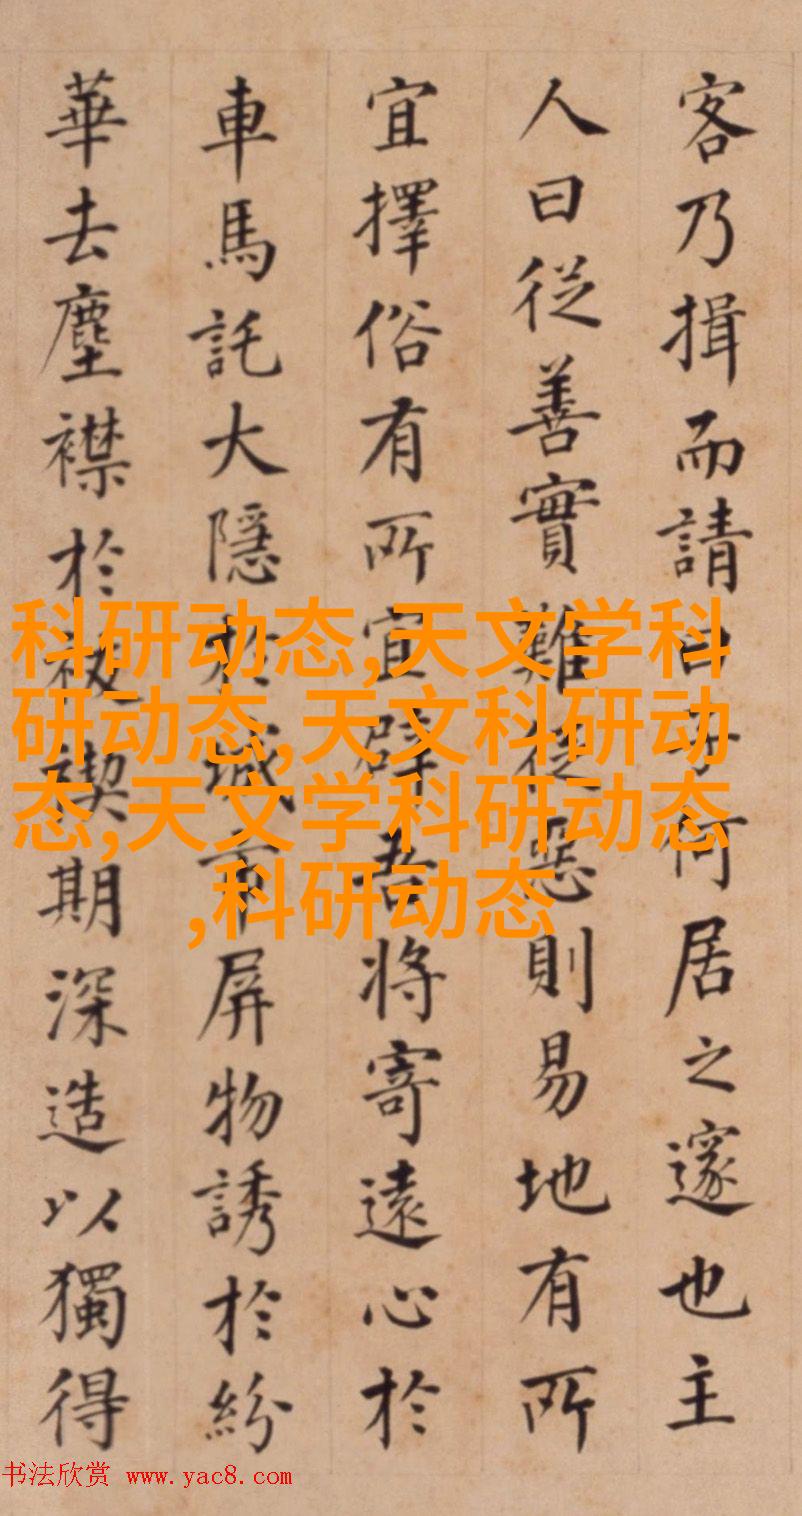 客乃揖而請曰子何居之邃也主
人曰從善實難從惡則易地有所
宜擇俗有所宜辟吾将寄遠心於
車馬託大隱於城市屏物誘於紛
華去塵襟於祓禊期深造以獨得
科研动态,天文学科
研动态,天文科研动
态,天文学科研动态
,科研动态
书法欣赏 www.yac8.com